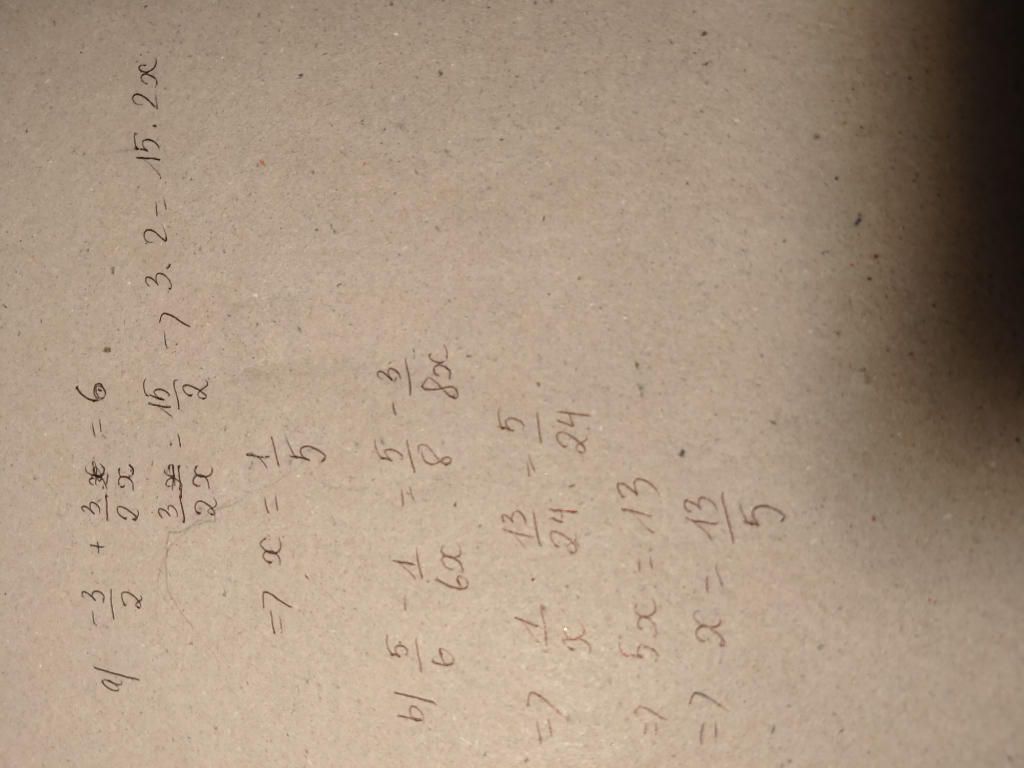 a) -3/2 + 3/2x = 6
3/2x = 15/2 => 3.2 = 15.2x
=> x = 1/5
b) 5/6 - 1/6x = 5/8 - 3/8x
=> 1/x . 13/24 = 5/24
=> 5x = 13
=> x = 13/5